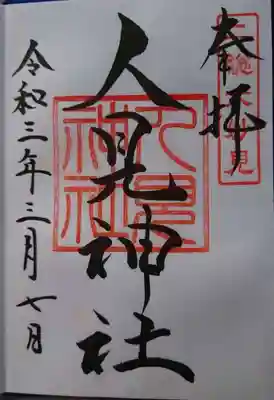 奉拝
人見神社
人見
神社
令和三年三月七日